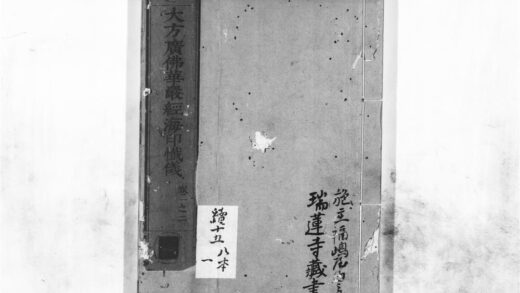 施主福嶋
瑞蓮寺藏書
續十五
八本
一
大方廣佛華嚴經海印懺儀